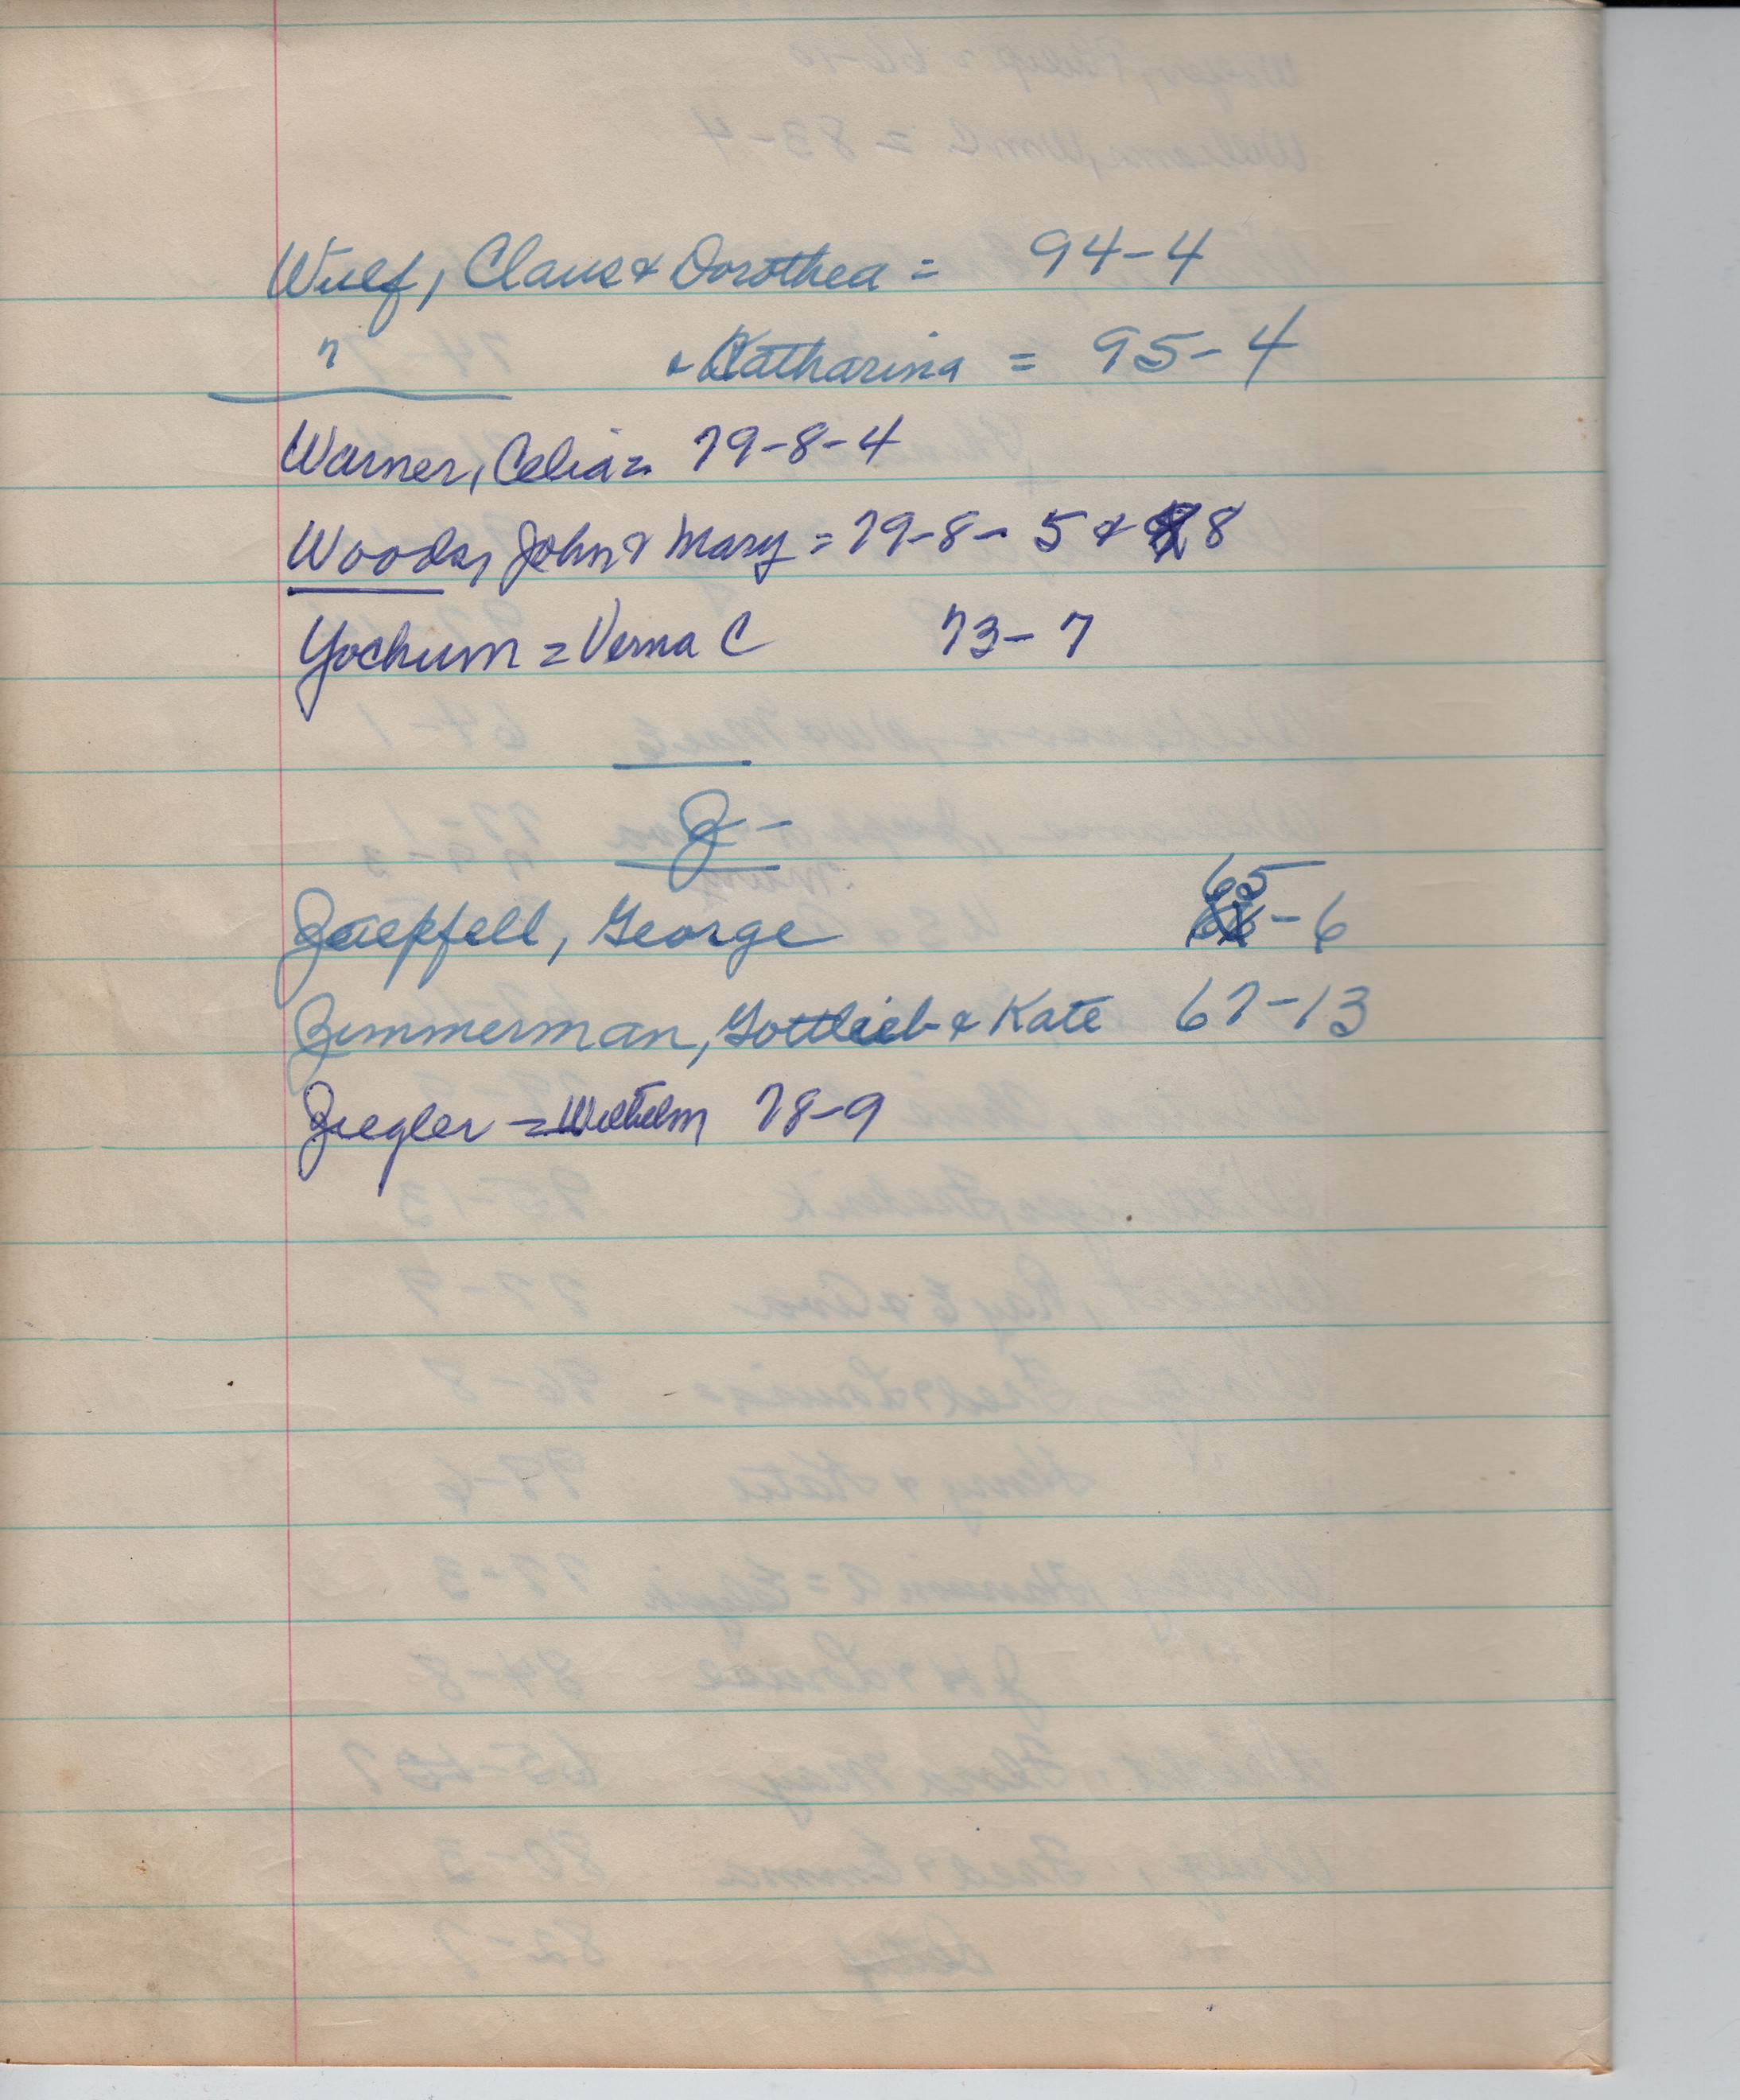 Wulf, Claus & Dorothea = 94-4
" & Katharina = 95-4
Warner, Celia = 79-8-4
Woods, John & Mary = 79-8-5 & 8
Yochum = Verna C 73-7
Z-
Zaepfell, George 65-6
Zimmerman, Gottlieb & Kate 67-13
Ziegler = Wilhelm 78-9